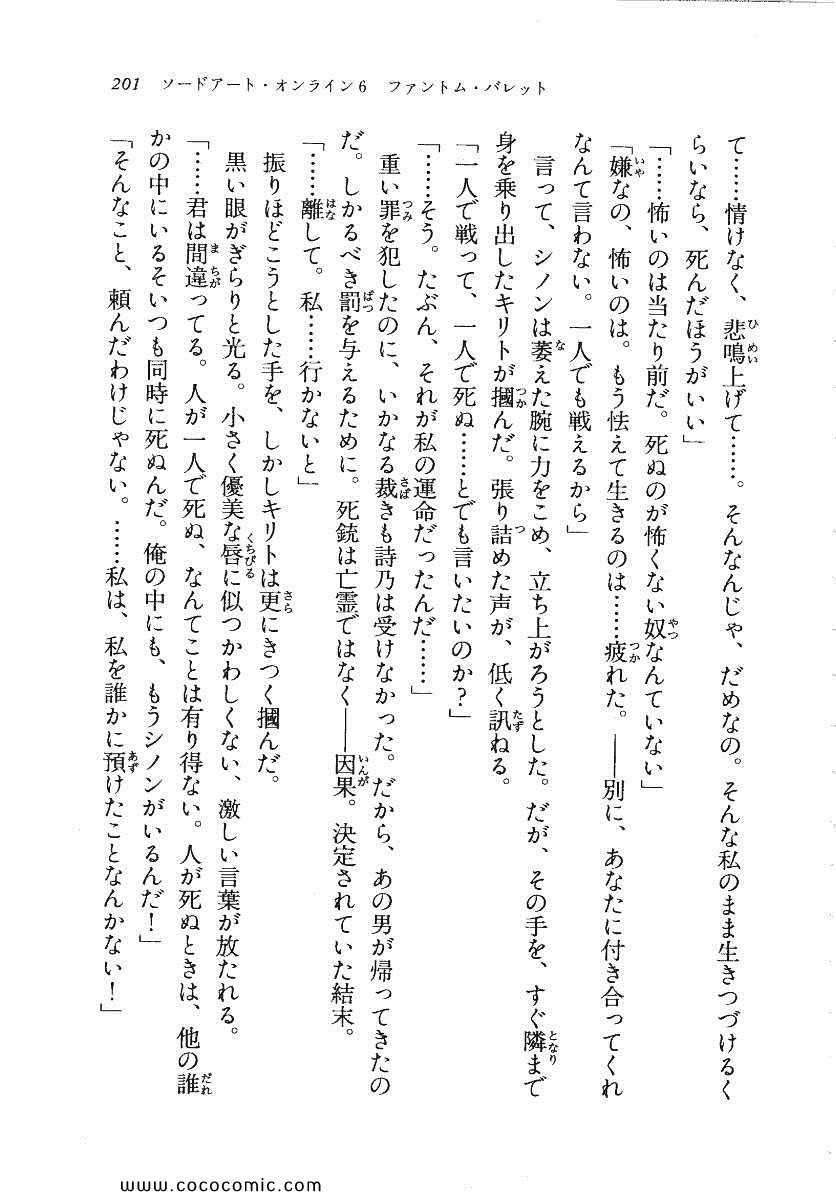 201　ソードアート・オンライン6　ファントム・バレット
て……情けなく、悲鳴上げて……。そんなんじゃ、だめなの。そんな私のまま生きつづけるく
らいなら、死んだほうがいい」
「……怖いのは当たり前だ。死ぬのが怖くない奴なんていない」
「嫌なの、怖いのは。もう怯えて生きるのは……疲れた。――別に、あなたに付き合ってくれ
なんて言わない。一人でも戦えるから」
　言って、シノンは萎えた腕に力をこめ、立ち上がろうとした。だが、その手を、すぐ隣まで
身を乗り出したキリトが摑んだ。張り詰めた声が、低く訊ねる。
「一人で戦って、一人で死ぬ……とでも言いたいのか？」
「……そう。たぶん、それが私の運命だったんだ……」
　重い罪を犯したのに、いかなる裁きも詩乃は受けなかった。だから、あの男が帰ってきたの
だ。しかるべき罰を与えるために。死銃は亡霊ではなく――因果。決定されていた結末。
「……離して。私……行かないと」
　振りほどこうとした手を、しかしキリトは更にきつく摑んだ。
　黒い眼がぎらりと光る。小さく優美な唇に似つかわしくない、激しい言葉が放たれる。
「……君は間違ってる。人が一人で死ぬ、なんてことは有り得ない。人が死ぬときは、他の誰
かの中にいるそいつも同時に死ぬんだ。俺の中にも、もうシノンがいるんだ！」
「そんなこと、頼んだわけじゃない。……私は、私を誰かに預けたことなんかない！」
www.cococomic.com/